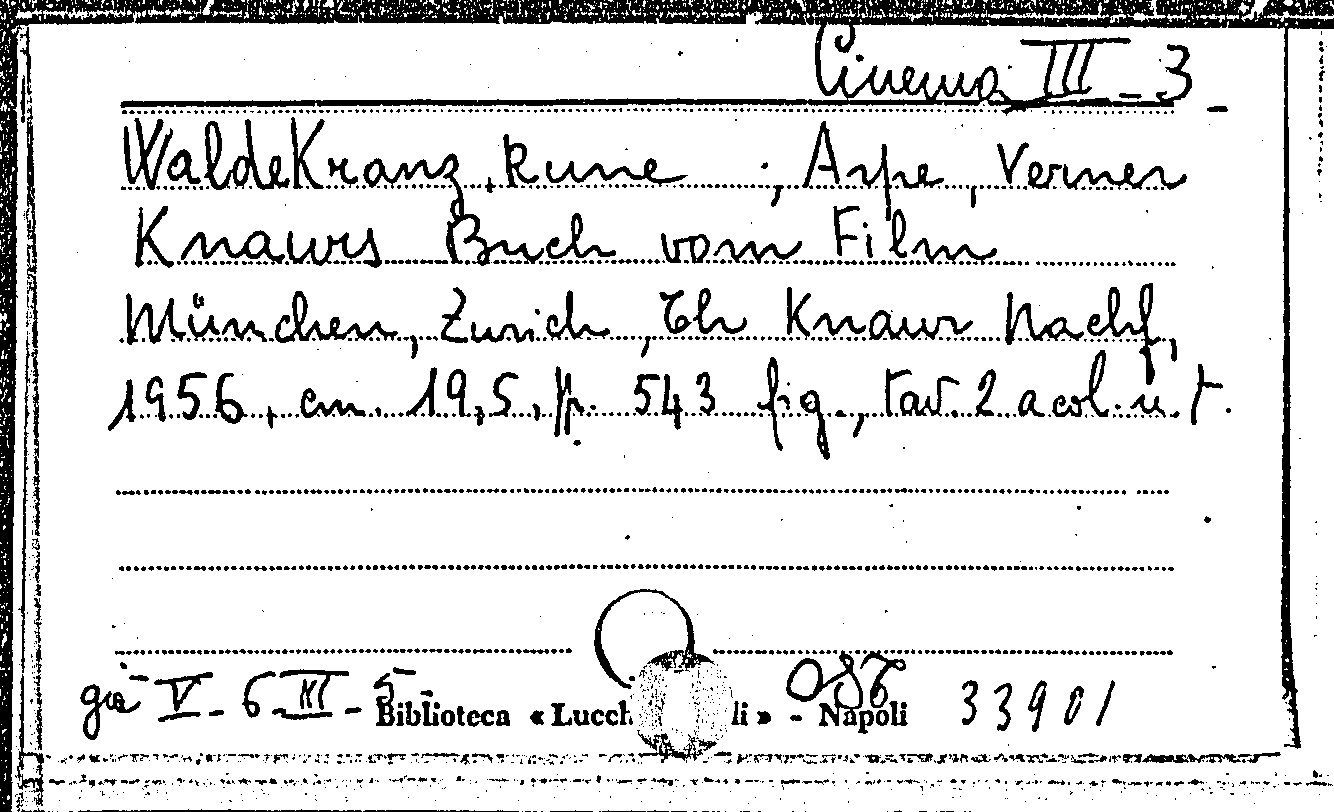 Cinema III - 3 -
Waldekranz, Rune ; Arpe, Verner
Knaurs Buch vom Film
München, Zurich, Th Knaur Nachf,
1956, cm. 19,5, pp. 543 fig., tav. 2 a col. n. t.
già V - 6 - XI - 5 -
Biblioteca « Lucch li » - Napoli 33901